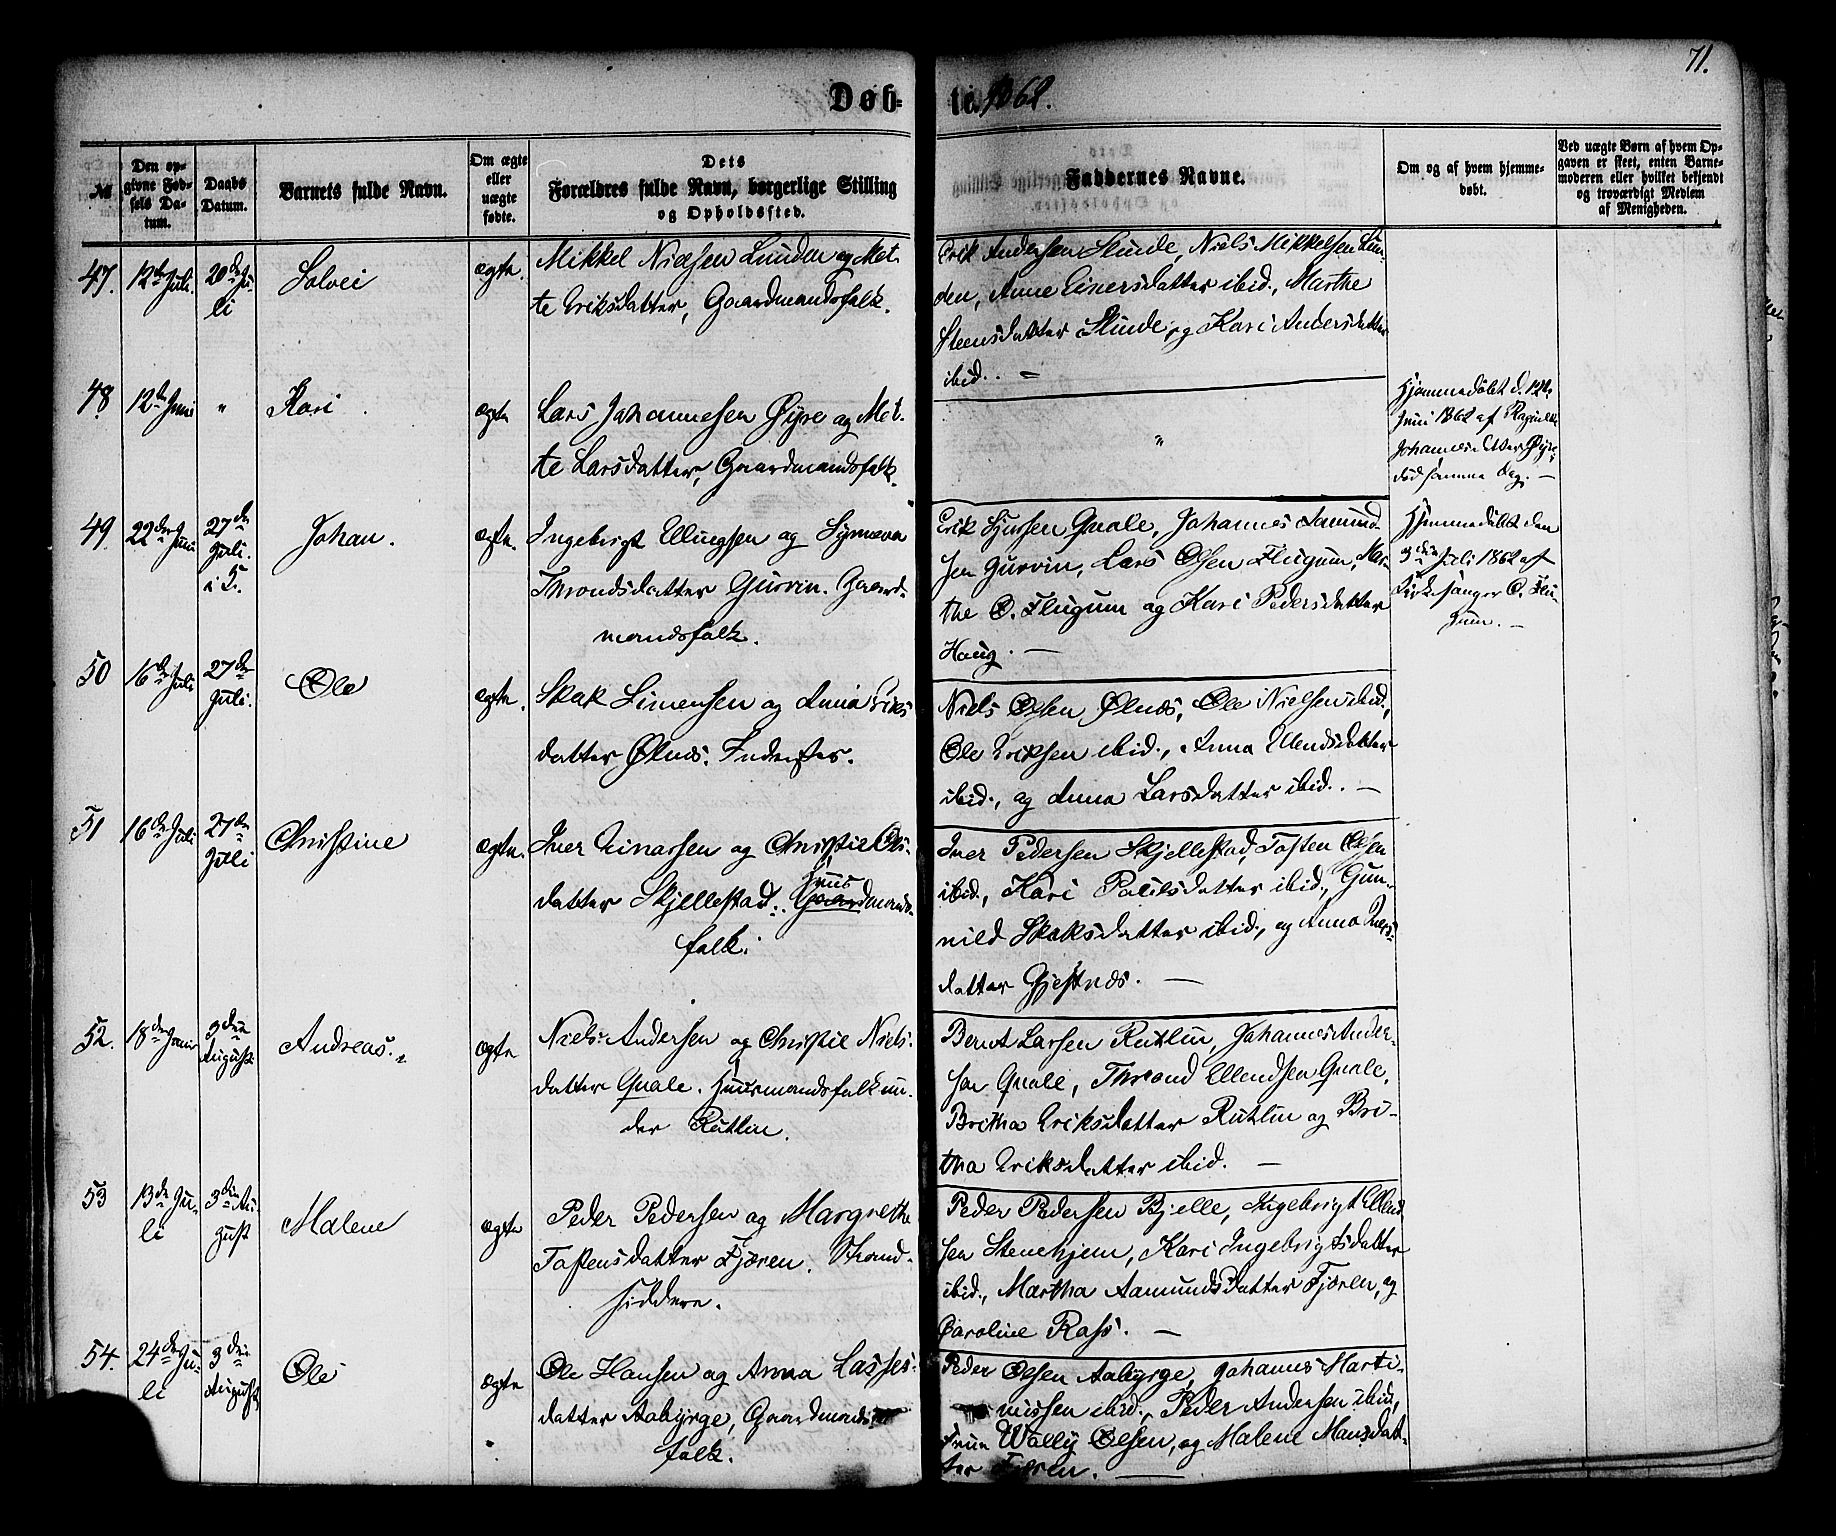 71.
Døb- te. 1862.
№
Den op-
givne Fød-
sels Da-
tum.
Daabs
Datum.
Barnets fulde Navn.
Om ægte
eller
uægte
fødte.
Dets
Forældres fulde Navn, borgerlige Stilling
og Opholdssted.
Faddernes Navne.
Om og af hvem hjemme-
døbt.
Ved uægte Børn af hvem Op-
gaven er skeet, enten Barne-
moderen eller hvilket bekjendt
og troværdigt Medlem
af Menigheden.
47.
12te Juli.
20de Ju-
li
Solvei
ægte.
Mikkel Nielsen Lunden og Met-
te Eriksdatter, Gaardmandsfolk.
Erik Andersen Slinde, Niels Mikkelsen Lun-
den, Anne Einersdatter ibid., Marthe
Steensdatter Slinde, og Kari Andersdatter
ibid. . —
48
12te Juni
"
Kari
ægte
Lars Johannesen Øyre og Met-
te Larsdatter, Gaardmandsfolk.
"
Hjemmedøbt d. 12te
Juni 1862 af Ragnilde
Johannesdatter Øyre,
død samme Dag. —
49.
22de Juni
27de
Juli.
i S.
Johan.
ægte.
Ingebrigt Ellingsen og Synneva
Throndsdatter Gurvin. Gaard-
mandsfolk.
Erik Sjursen Quale, Johannes Aamund-
sen Gurvin, Lars Olsen Flugum, Mar-
the O. Flugum og Kari Pedersdatter
Haug. —
Hjemmedøbt den
3die Juli 1862 af
Kirkesanger O. Flu-
gum. —
50
16de Juli
27de
Juli.
Ole
ægte.
Skak Simensen og Anna Eriks
datter Ølnæs. Inderster.
Niels Olsen Ølnæs, Ole Nielsen ibid.,
Ole Eriksen ibid., Anna Ellendsdatter
ibid., og Anna Larsdatter ibid. . —
51
16de Juli
27de
Juli
Christine
ægte.
Iver Einarsen og Christie Ols-
datter Skjellestad. Huus
Gaardmands-
folk.
Iver Pedersen Skjellestad, Tosten Olsen
ibid., Kari Poulsdatter ibid., Gun-
nild Skaksdatter ibid., og Anna Ivers-
datter Gjestnæs. —
52.
18de Juni
3die
August
Andreas.
ægte
Niels Andersen og Christie Niels-
datter Quale. Huusmandsfolk un-
der Rutlin.
Bernt Larsen Rutlin, Johannes Ander-
sen Quale, Thrond Ellendsen Quale,
Britha Eriksdatter Rutlin og Bri-
tha Eriksdatter ibid. —
53
13de Ju-
li
3die Au-
gust
Malene
ægte
Peder Pedersen og Margrethe
Tostensdatter Fjæren. Strand-
siddere.
Peder Pedersen Bjelle, Ingebrigt Ellend
sen Stenehjem, Kari Ingebrigtsdatter
ibid., Martha Aamundsdatter Fjæren, og
Caroline Rafs. —
54.
24de Ju-
li
3die
August
Ole
ægte
Ole Hansen og Anna Lasses-
datter Aabyrge, Gaardmands
folk.
Peder Olsen Aabyrge, Johannes Marti-
nussen ibid., Peder Andersen ibid.,
Frue Wally Olsen, og Malene Monsdat-
ter Fjæren. —